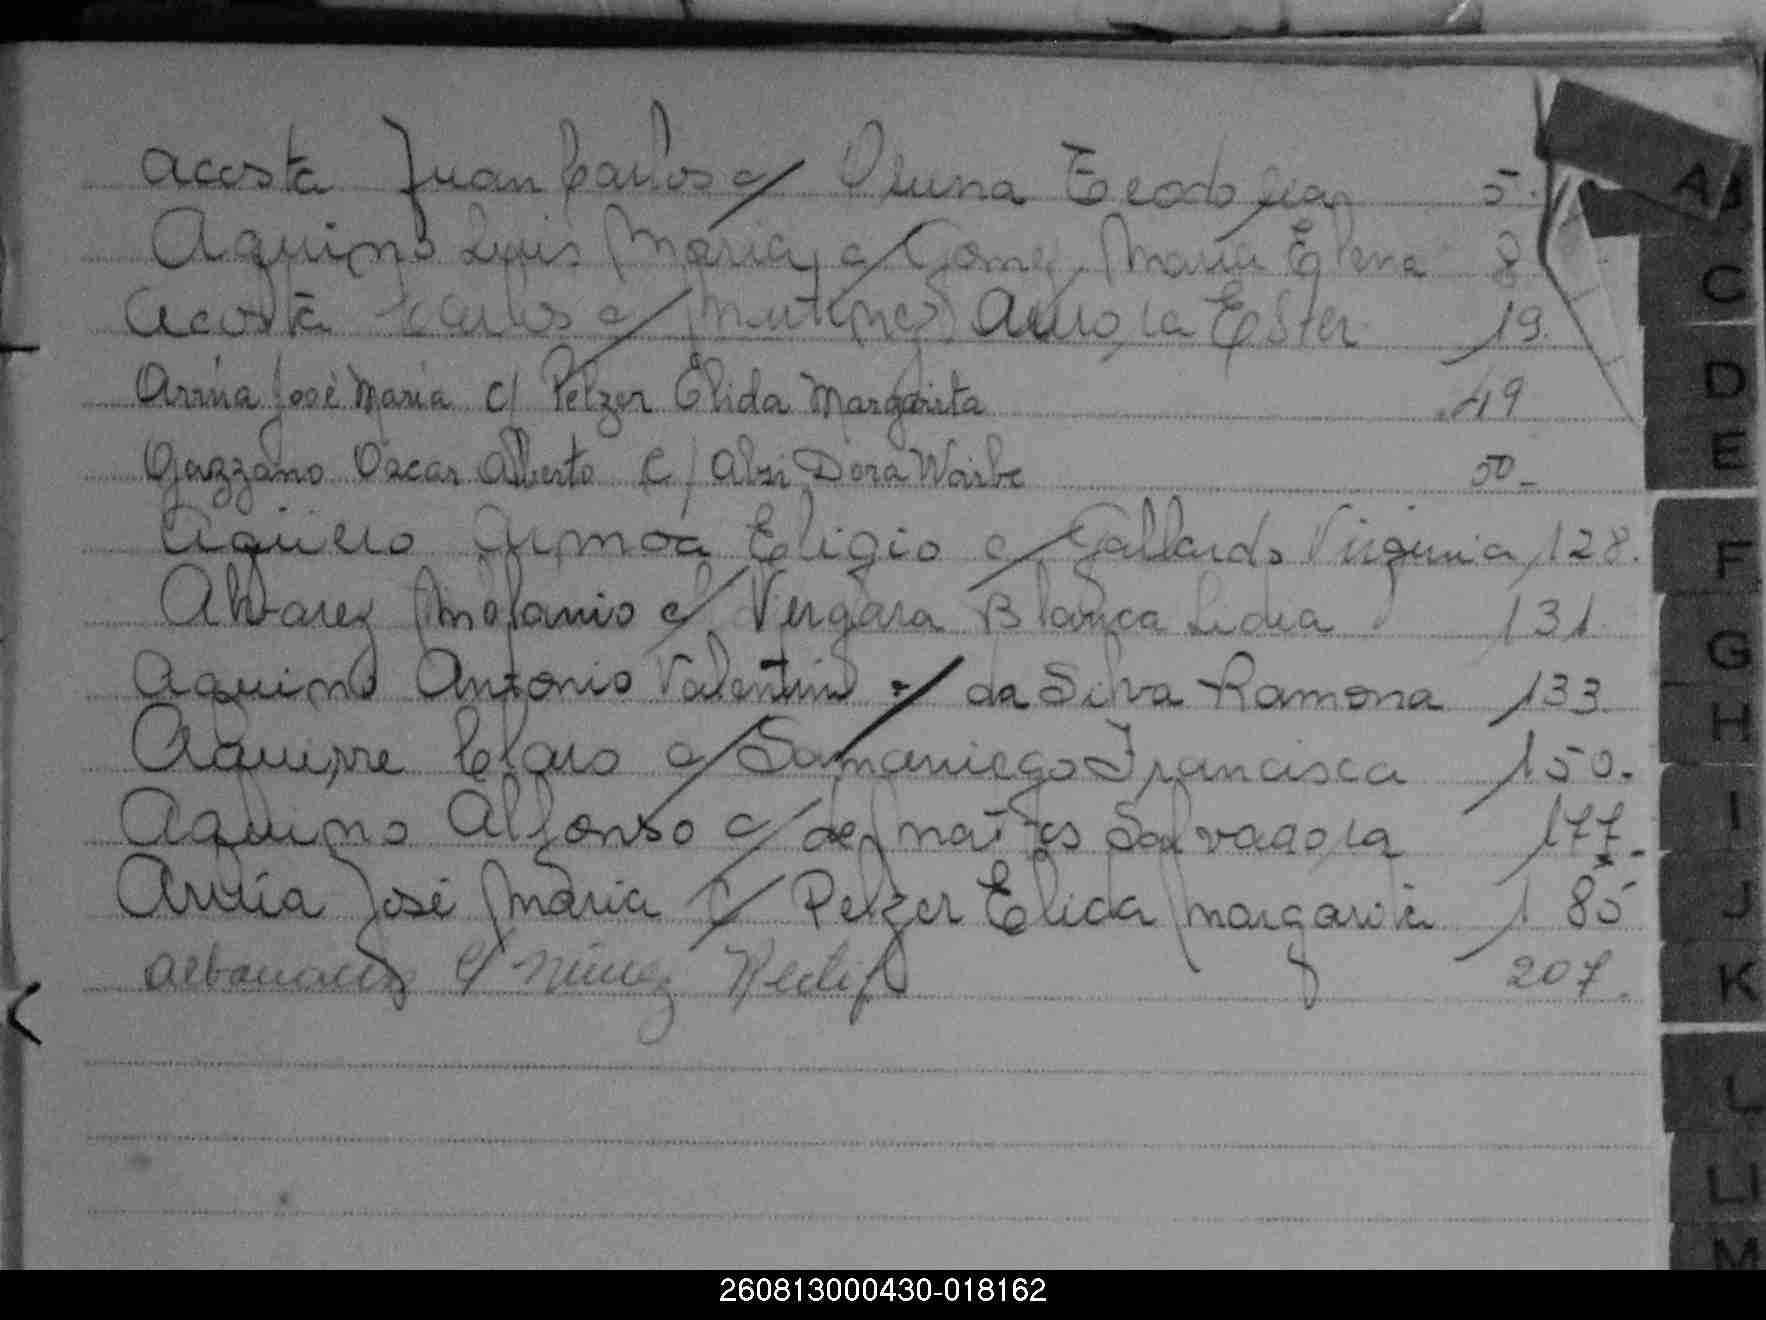 Acosta Juan Carlos c/ Teodo 5.
Aquino Luis María c/ Gomez María Elena 8
Acosta Carlos c/ Aurora Ester 19.
Arrua José María c/ Pelzer Elida Margarita 49
Oscar Alberto c/ Dora 50-
Agüero Armoa Eligio c/ Gallardo Virginia 128.
Alvarez Melanio c/ Vergara Blanca Lidia 131
Aquino Antonio Valentin c/ da Silva Ramona 133
Aguirre Claro c/ Samaniego Francisca 150.
Aquino Alfonso c/ de Salvadora 177.
Arrúa José María c/ Pelzer Elida Margarita 185
c/ Núñez 207.
A
C
D
E
F
G
H
I
J
K
L
Ll
M
260813000430-018162